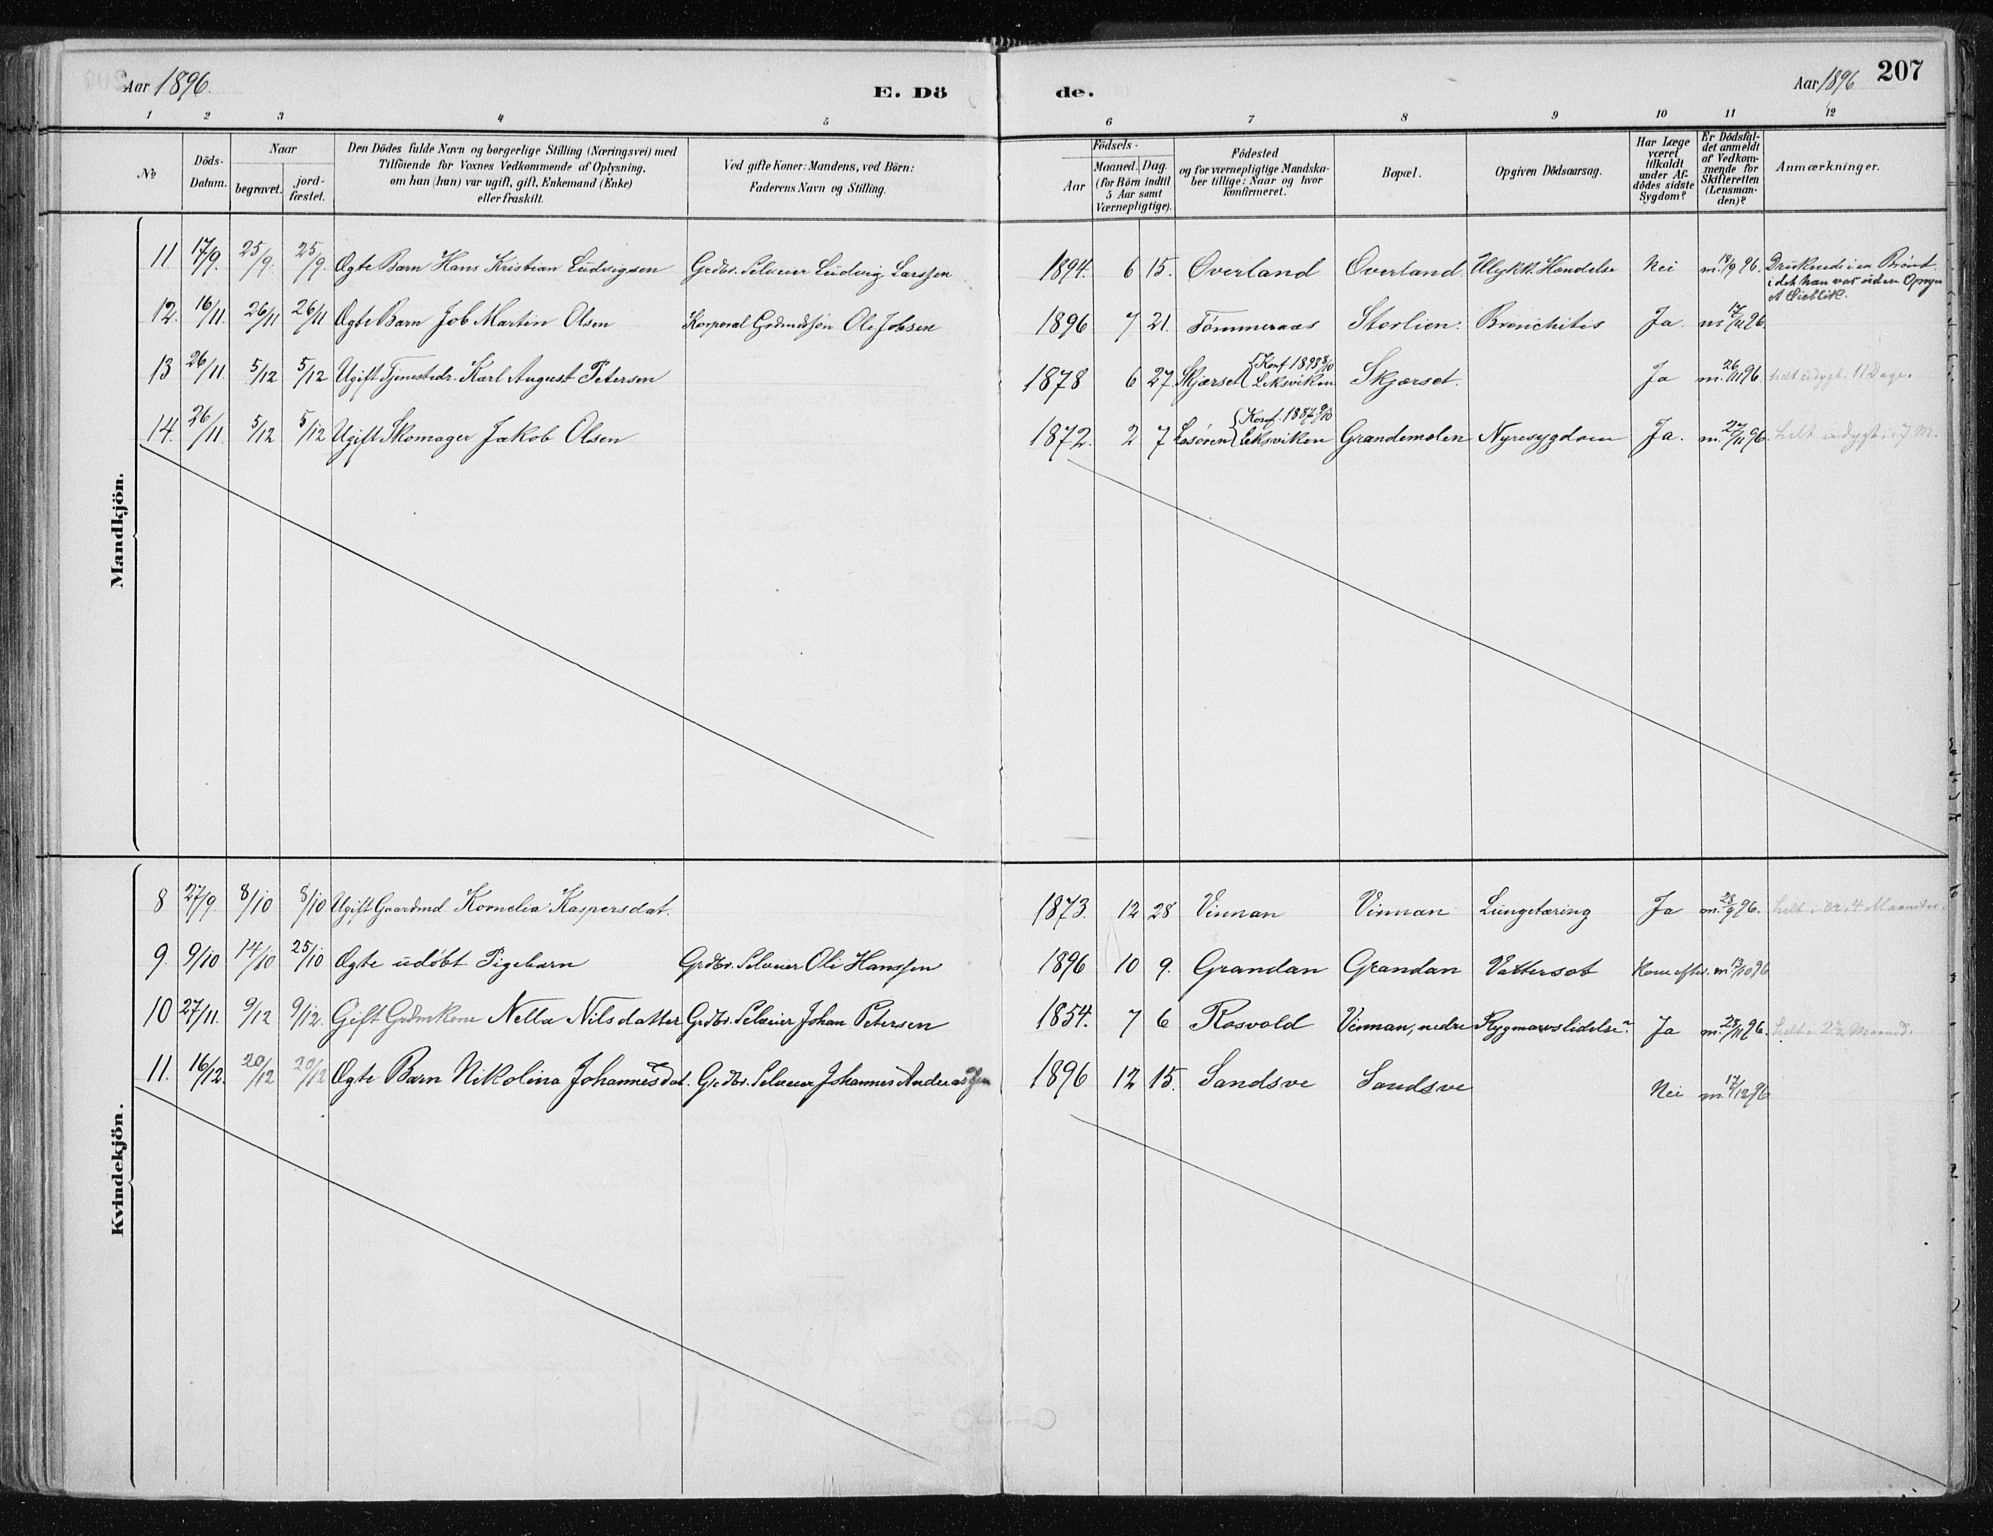 Aar 1896.
E. Dö
de.
Aar 1896
207
1 2 3 4 5 6 7 8 9 10 11 12
No
Döds-Datum.
Naar
begravet.
jord-fæstet.
Den Dödes fulde Navn og borgerlige Stilling (Næringsvei) med
Tilföiende for Voxnes Vedkommende af Oplysning,
om han (hun) var ugift, gift, Enkemand (Enke)
eller fraskilt.
Ved gifte Koner: Mandens, ved Börn:
Faderens Navn og Stilling.
Födsels-
Aar
Maaned. Dag.
(for Börn indtil
5 Aar samt
Værnepligtige).
Födested
og for værnepligtige Mandska-
ber tillige: Naar og hvor
konfirmeret.
Bopæl.
Opgiven Dödsaarsag.
Har Læge
været
tilkaldt
under Af-
dödes sidste
Sygdom?
Er Dödsfal-
det anmeldt
af Vedkom-
mende for
Skifteretten
(Lensman-
den)?
Anmærkninger.
Mandkjön.
11. 17/9. 25/9. 25/9 Ægte Barn Hans Kristian Ludvigsen Grdbr. Selveier Ludvig Larssen 1894. 6 15. Overland Overland Ulykk. Hændelse Nei m. 19/9 96. Druknede i en Brønd
i det han var uden Opsyn
et Øieblik.
12. 16/11. 26/11 26/11 Ægte Barn Job Martin Olsen Korporal Grdmdssøn Ole Jobsen 1896 7 21. Tømmeraas Storlien. Bronchites Ja. m 17/11 96.
13 26/11 5/12 5/12 Ugift Tjenestedr. Karl August Petersen 1878 6 27. Skjærset {Konf 1893 8/10 Leksviken Skjærset. Ja m. 26/11 96. helt udygt. 11 Dage.
14. 26/11. 5/12 5/12 Ugift Skomager Jakob Olsen 1872. 2 7 Losøren {Konf. 1887 9/10 Leksviken Grandemolen Nyresygdom Ja. m. 27/11 96. helt udygt. i 7 M.
Kvindekjön.
8 27/9. 8/10 8/10 Ugift Gaardmd. Kornelia Kaspersdat. 1873. 12 28 Vinnan Vinnan Lungetæring Ja m. 28/9 96. helt i ca. 4 Maaneder.
9. 9/10 14/10 25/10 Ægte udøbt Pigebarn Grdbr. Selveier Oli Hanssen 1896 10 9. Grandan Grandan Vattersot Kom efter. m 13/10 96
10 27/11. 9/12 9/12. Gift Grdmkone Netta Nilsdatter Grdbr. Selveier Johan Petersen 1854. 7 6 Rosvold Vinnan, nedre Rygmarvslidelse? Ja m. 28/11 96. helt i 2 1/2 Maaned.
11. 16/12. 20/12 20/12 Ægte Barn Nikolina Johannesdat. Grdbr. Selveier Johannes Andreassen 1896 12 15. Sandsve Sandsve Nei m. 17/12 96